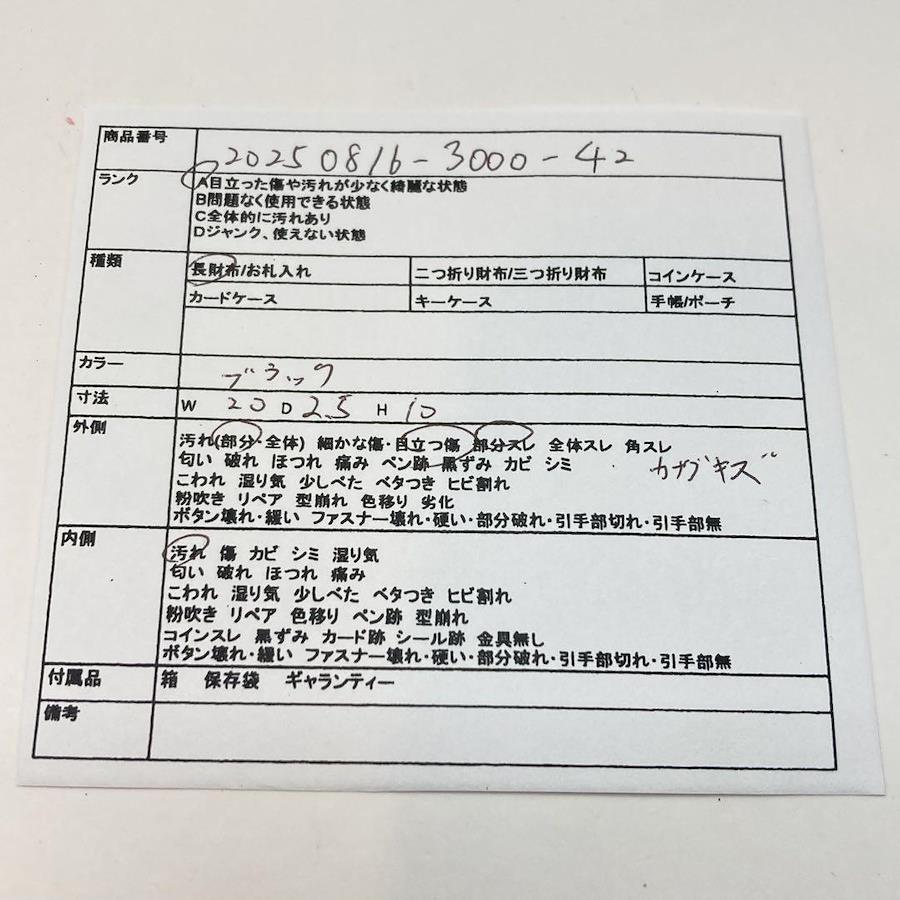 商品番号 20250816-3000-42
ランク A目立った傷や汚れが少なく綺麗な状態
B問題なく使用できる状態
C全体的に汚れあり
Dジャンク、使えない状態
種類 長財布/お札入れ 二つ折り財布/三つ折り財布 コインケース
カードケース キーケース 手帳/ポーチ
カラー ブラック
寸法 W 20 D 2.5 H 10
外側 汚れ(部分・全体) 細かな傷・目立つ傷 部分スレ 全体スレ 角スレ
匂い 破れ ほつれ 痛み ペン跡 黒ずみ カビ シミ カナグキズ
こわれ 湿り気 少しべた ベタつき ヒビ割れ
粉吹き リペア 型崩れ 色移り 劣化
ボタン壊れ・緩い ファスナー壊れ・硬い・部分破れ・引手部切れ・引手部無
内側 汚れ 傷 カビ シミ 湿り気
匂い 破れ ほつれ 痛み
こわれ 湿り気 少しべた ベタつき ヒビ割れ
粉吹き リペア 色移り ペン跡 型崩れ
コインスレ 黒ずみ カード跡 シール跡 金具無し
ボタン壊れ・緩い ファスナー壊れ・硬い・部分破れ・引手部切れ・引手部無
付属品 箱 保存袋 ギャランティー
備考